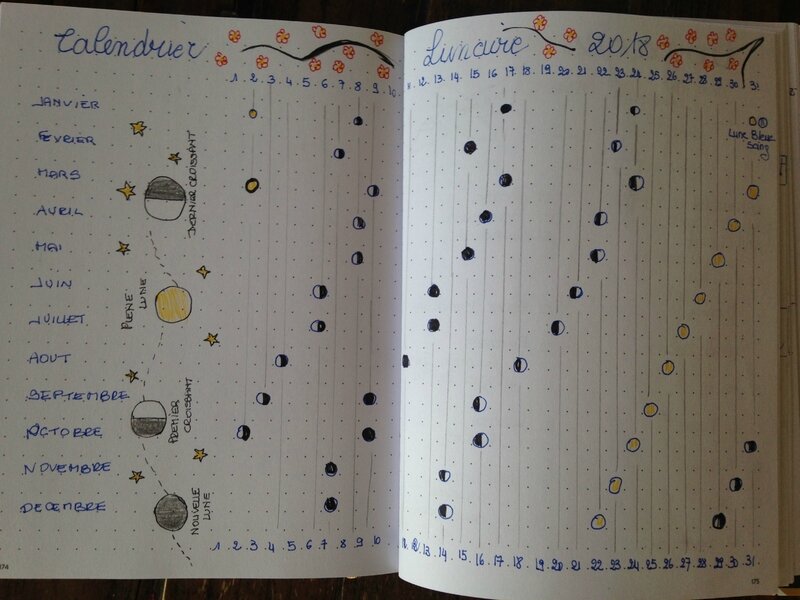 Calendrier Lunaire 2018
1 . 2 . 3 . 4 . 5 . 6 . 7 . 8 . 9 . 10 . 12 . 13 . 14 . 15 . 16 . 17 . 18 . 19 . 20 . 21 . 22 . 23 . 24 . 25 . 26 . 27 . 28 . 29 . 30 . 31
JANVIER
Lune Bleue
Sang
FÉVRIER
MARS
AVRIL
MAI
JUIN
JUILLET
AOUT
SEPTEMBRE
OCTOBRE
NOVEMBRE
DECEMBRE
DERNIER CROISSANT
PLEINE
LUNE
PREMIER
CROISSANT
NOUVELLE
LUNE
1 . 2 . 3 . 4 . 5 . 6 . 7 . 8 . 9 . 10 . 11 . 12 . 13 . 14 . 15 . 16 . 17 . 18 . 19 . 20 . 21 . 22 . 23 . 24 . 25 . 26 . 27 . 28 . 29 . 30 . 31
174
175